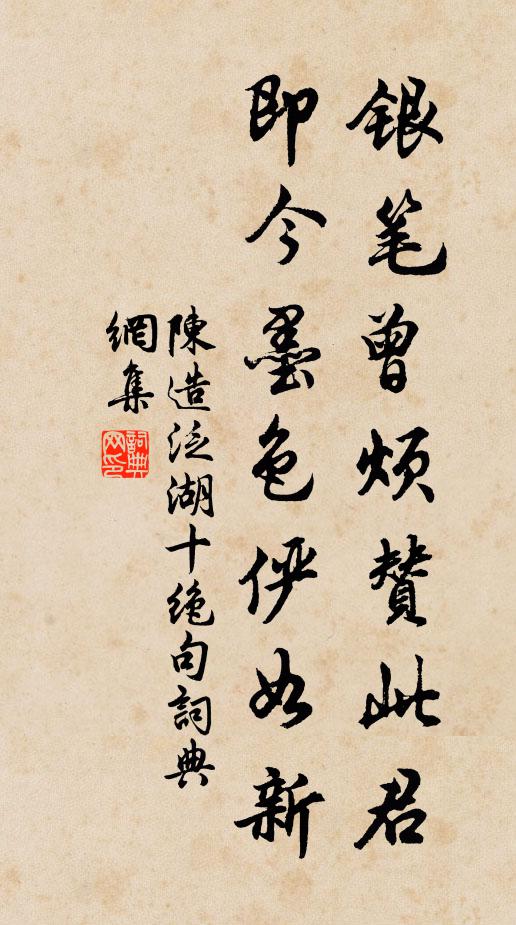 银笔曾烦赞此君
即今墨色俨如新
陳造泛湖十绝句詞典
網集
詞典网印